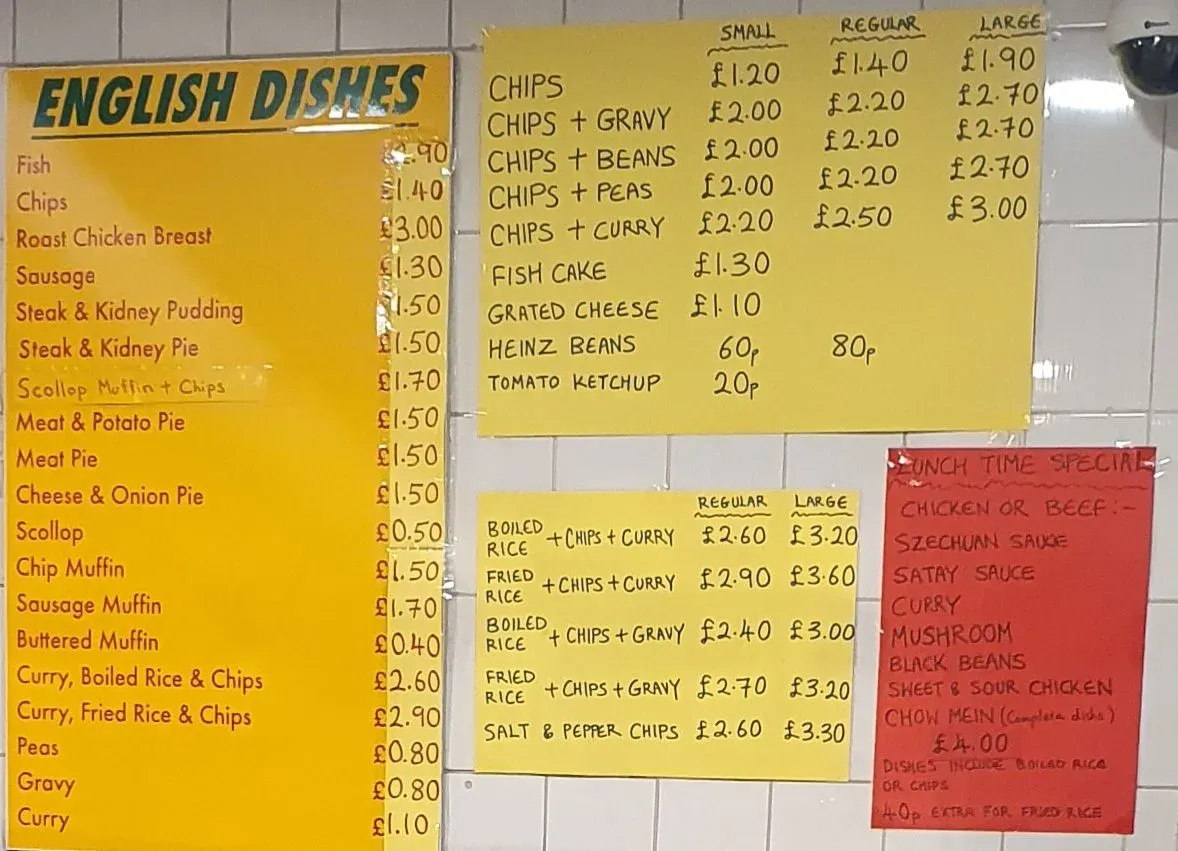 ENGLISH DISHES
Fish £2.90
Chips £1.40
Roast Chicken Breast £3.00
Sausage £1.30
Steak & Kidney Pudding £1.50
Steak & Kidney Pie £1.50
Scollop Muffin + Chips £1.70
Meat & Potato Pie £1.50
Meat Pie £1.50
Cheese & Onion Pie £1.50
Scollop £0.50
Chip Muffin £1.50
Sausage Muffin £1.70
Buttered Muffin £0.40
Curry, Boiled Rice & Chips £2.60
Curry, Fried Rice & Chips £2.90
Peas £0.80
Gravy £0.80
Curry £1.10
SMALL REGULAR LARGE
CHIPS £1.20 £1.40 £1.90
CHIPS + GRAVY £2.00 £2.20 £2.70
CHIPS + BEANS £2.00 £2.20 £2.70
CHIPS + PEAS £2.00 £2.20 £2.70
CHIPS + CURRY £2.20 £2.50 £3.00
FISH CAKE £1.30
GRATED CHEESE £1.10
HEINZ BEANS 60p 80p
TOMATO KETCHUP 20p
REGULAR LARGE
BOILED RICE + CHIPS + CURRY £2.60 £3.20
FRIED RICE + CHIPS + CURRY £2.90 £3.60
BOILED RICE + CHIPS + GRAVY £2.40 £3.00
FRIED RICE + CHIPS + GRAVY £2.70 £3.20
SALT & PEPPER CHIPS £2.60 £3.30
LUNCH TIME SPECIAL
CHICKEN OR BEEF:-
SZECHUAN SAUCE
SATAY SAUCE
CURRY
MUSHROOM
BLACK BEANS
SWEET & SOUR CHICKEN
CHOW MEIN (Complete dishe)
£4.00
DISHES INCLUDE BOILED RICE
OR CHIPS
40p EXTRA FOR FRIED RICE